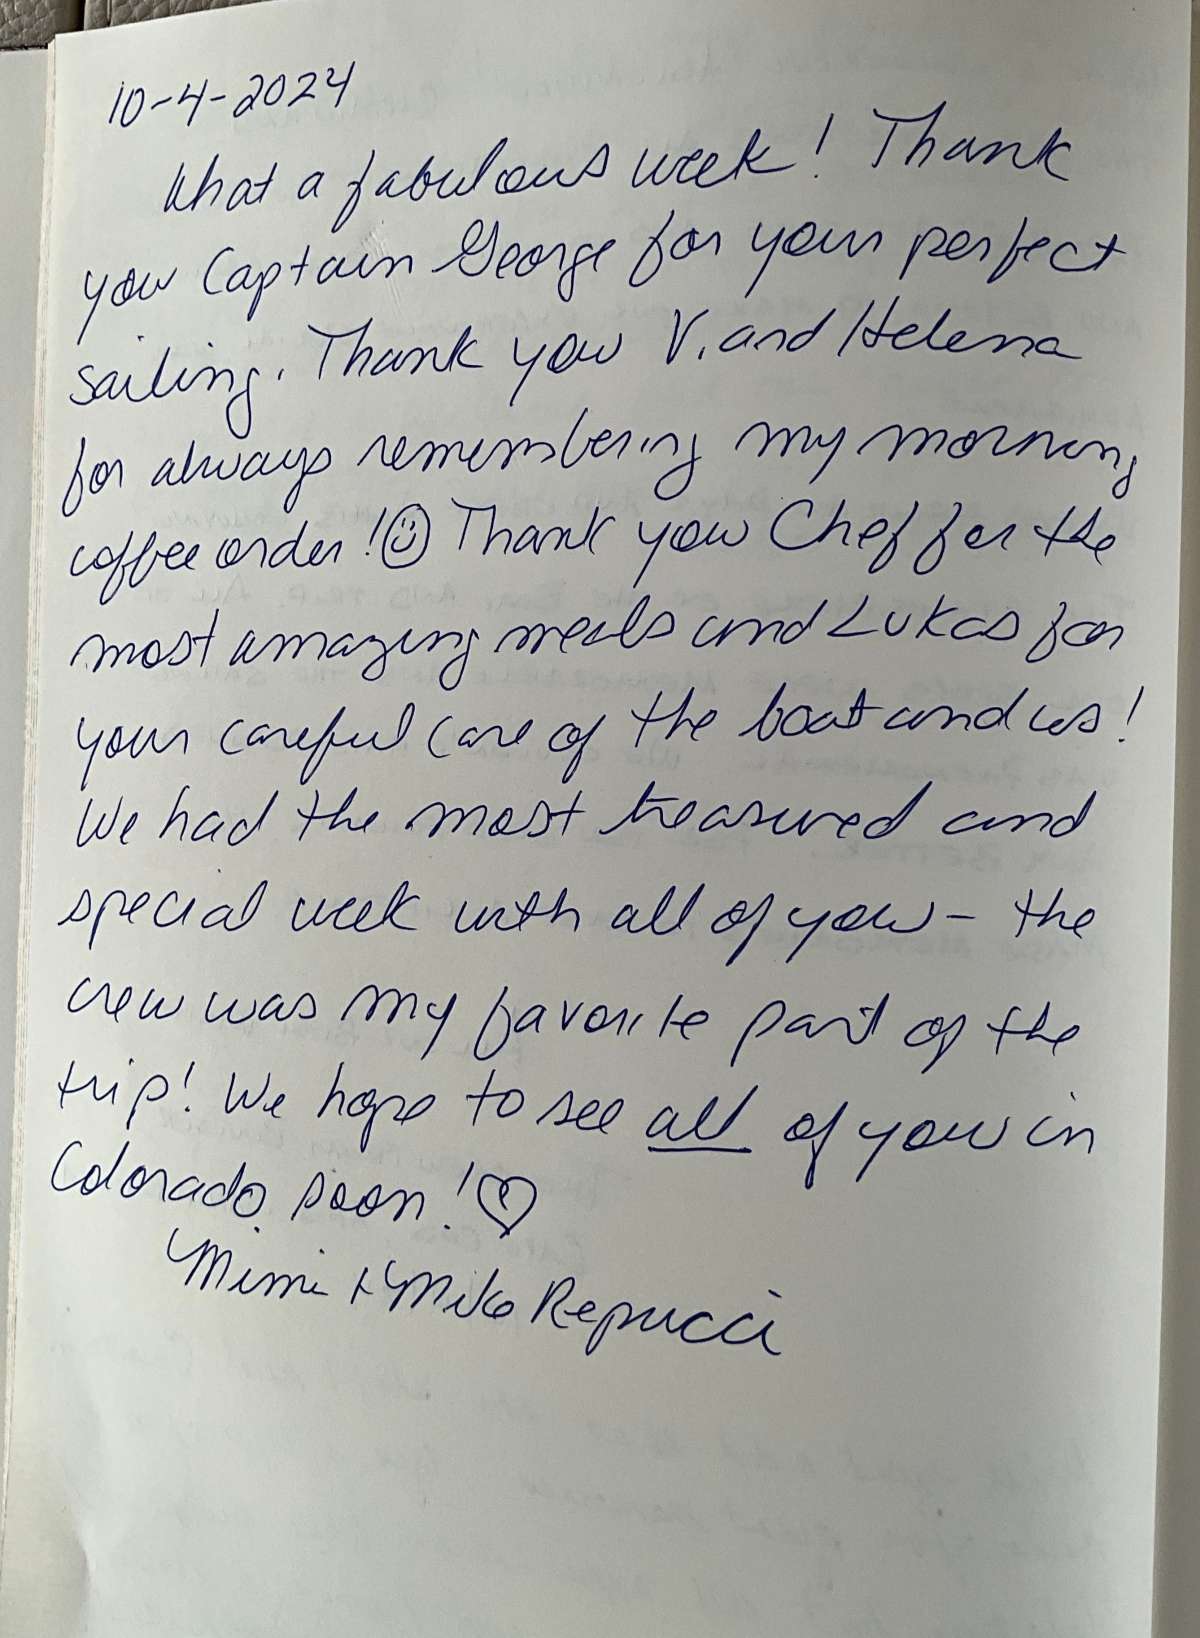 10-4-2024
What a fabulous week! Thank
you Captain George for your perfect
sailing. Thank you V. and Helena
for always remembering my morning
coffee order! ☺ Thank you Chef for the
most amazing meals and Lukas for
your careful care of the boat and us!
We had the most treasured and
special week with all of you – the
crew was my favorite part of the
trip! We hope to see all of you in
Colorado soon! ♡
Mimi + Mike Repucci